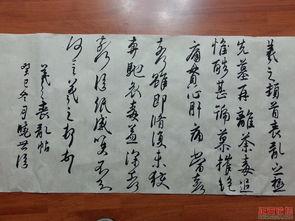 羲之頓首喪亂之極
先墓再離荼毒追
惟酷甚號慕摧絕
痛貫心肝痛當奈何
奈何雖即脩復未獲
奔馳哀毒益深奈何
奈何臨紙感哽不知
何言羲之頓首頓首
羲之喪亂帖
癸巳冬月